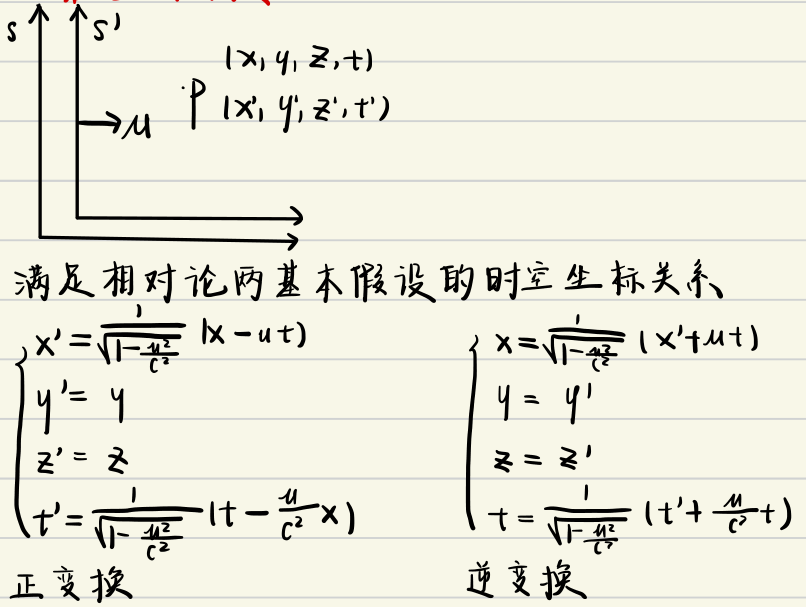 S S'
(x, y, z, t)
P (x', y', z', t')
→ u
满足相对论两基本假设的时空坐标关系
x' = 1/√(1 - u²/c²) (x - ut)
y' = y
z' = z
t' = 1/√(1 - u²/c²) (t - u/c² x)
正变换
x = 1/√(1 - u²/c²) (x' + ut)
y = y'
z = z'
t = 1/√(1 - u²/c²) (t' + u/c² t)
逆变换